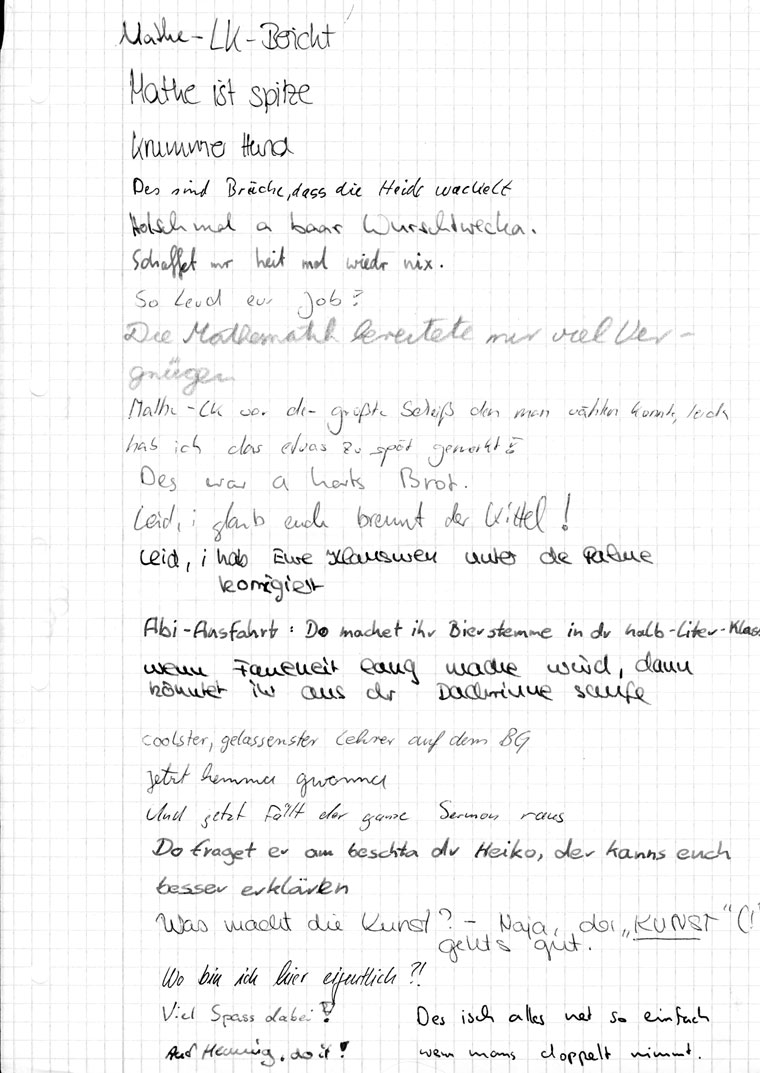 Mathe-LK-Bericht
Mathe ist spitze
Krummer Hund
Des sind Brüche, dass die Heide wackelt
Holsch mal a baar Wurschtwecka.
Schaffet mr heit mal wiedr nix.
So Leud eur Job?
Die Mathematik bereitete mir viel Ver-
gnügen
Mathe-LK war der größte Scheiß den man wählen konnte, leider
hab ich das etwas zu spät gemerkt!
Des war a harts Brot.
Leid, i glaub euch brennt der Kittel!
Leid, i hab Eure Klausuren unter de Palme
korrigiert
Abi-Ausfahrt: Do machet ihr Bierstemme in dr halb-Liter-Klas
wenn Faulheit lang mache würd, dann
könntet ihr aus dr Dachrinne saufe
coolster, gelassenster Lehrer auf dem BG
Jetzt hemma gwonna
Und jetzt fällt der ganze Sermon raus
Do fraget er am beschta dr Heiko, der kanns euch
besser erklären
Was macht die Kunst? - Naja, der "KUNST" (!
gehts gut.
Wo bin ich hier eigentlich?!
Viel Spass dabei!
Des isch alles net so einfach
Auf Henning, do it!
wem mans doppelt nimmt.